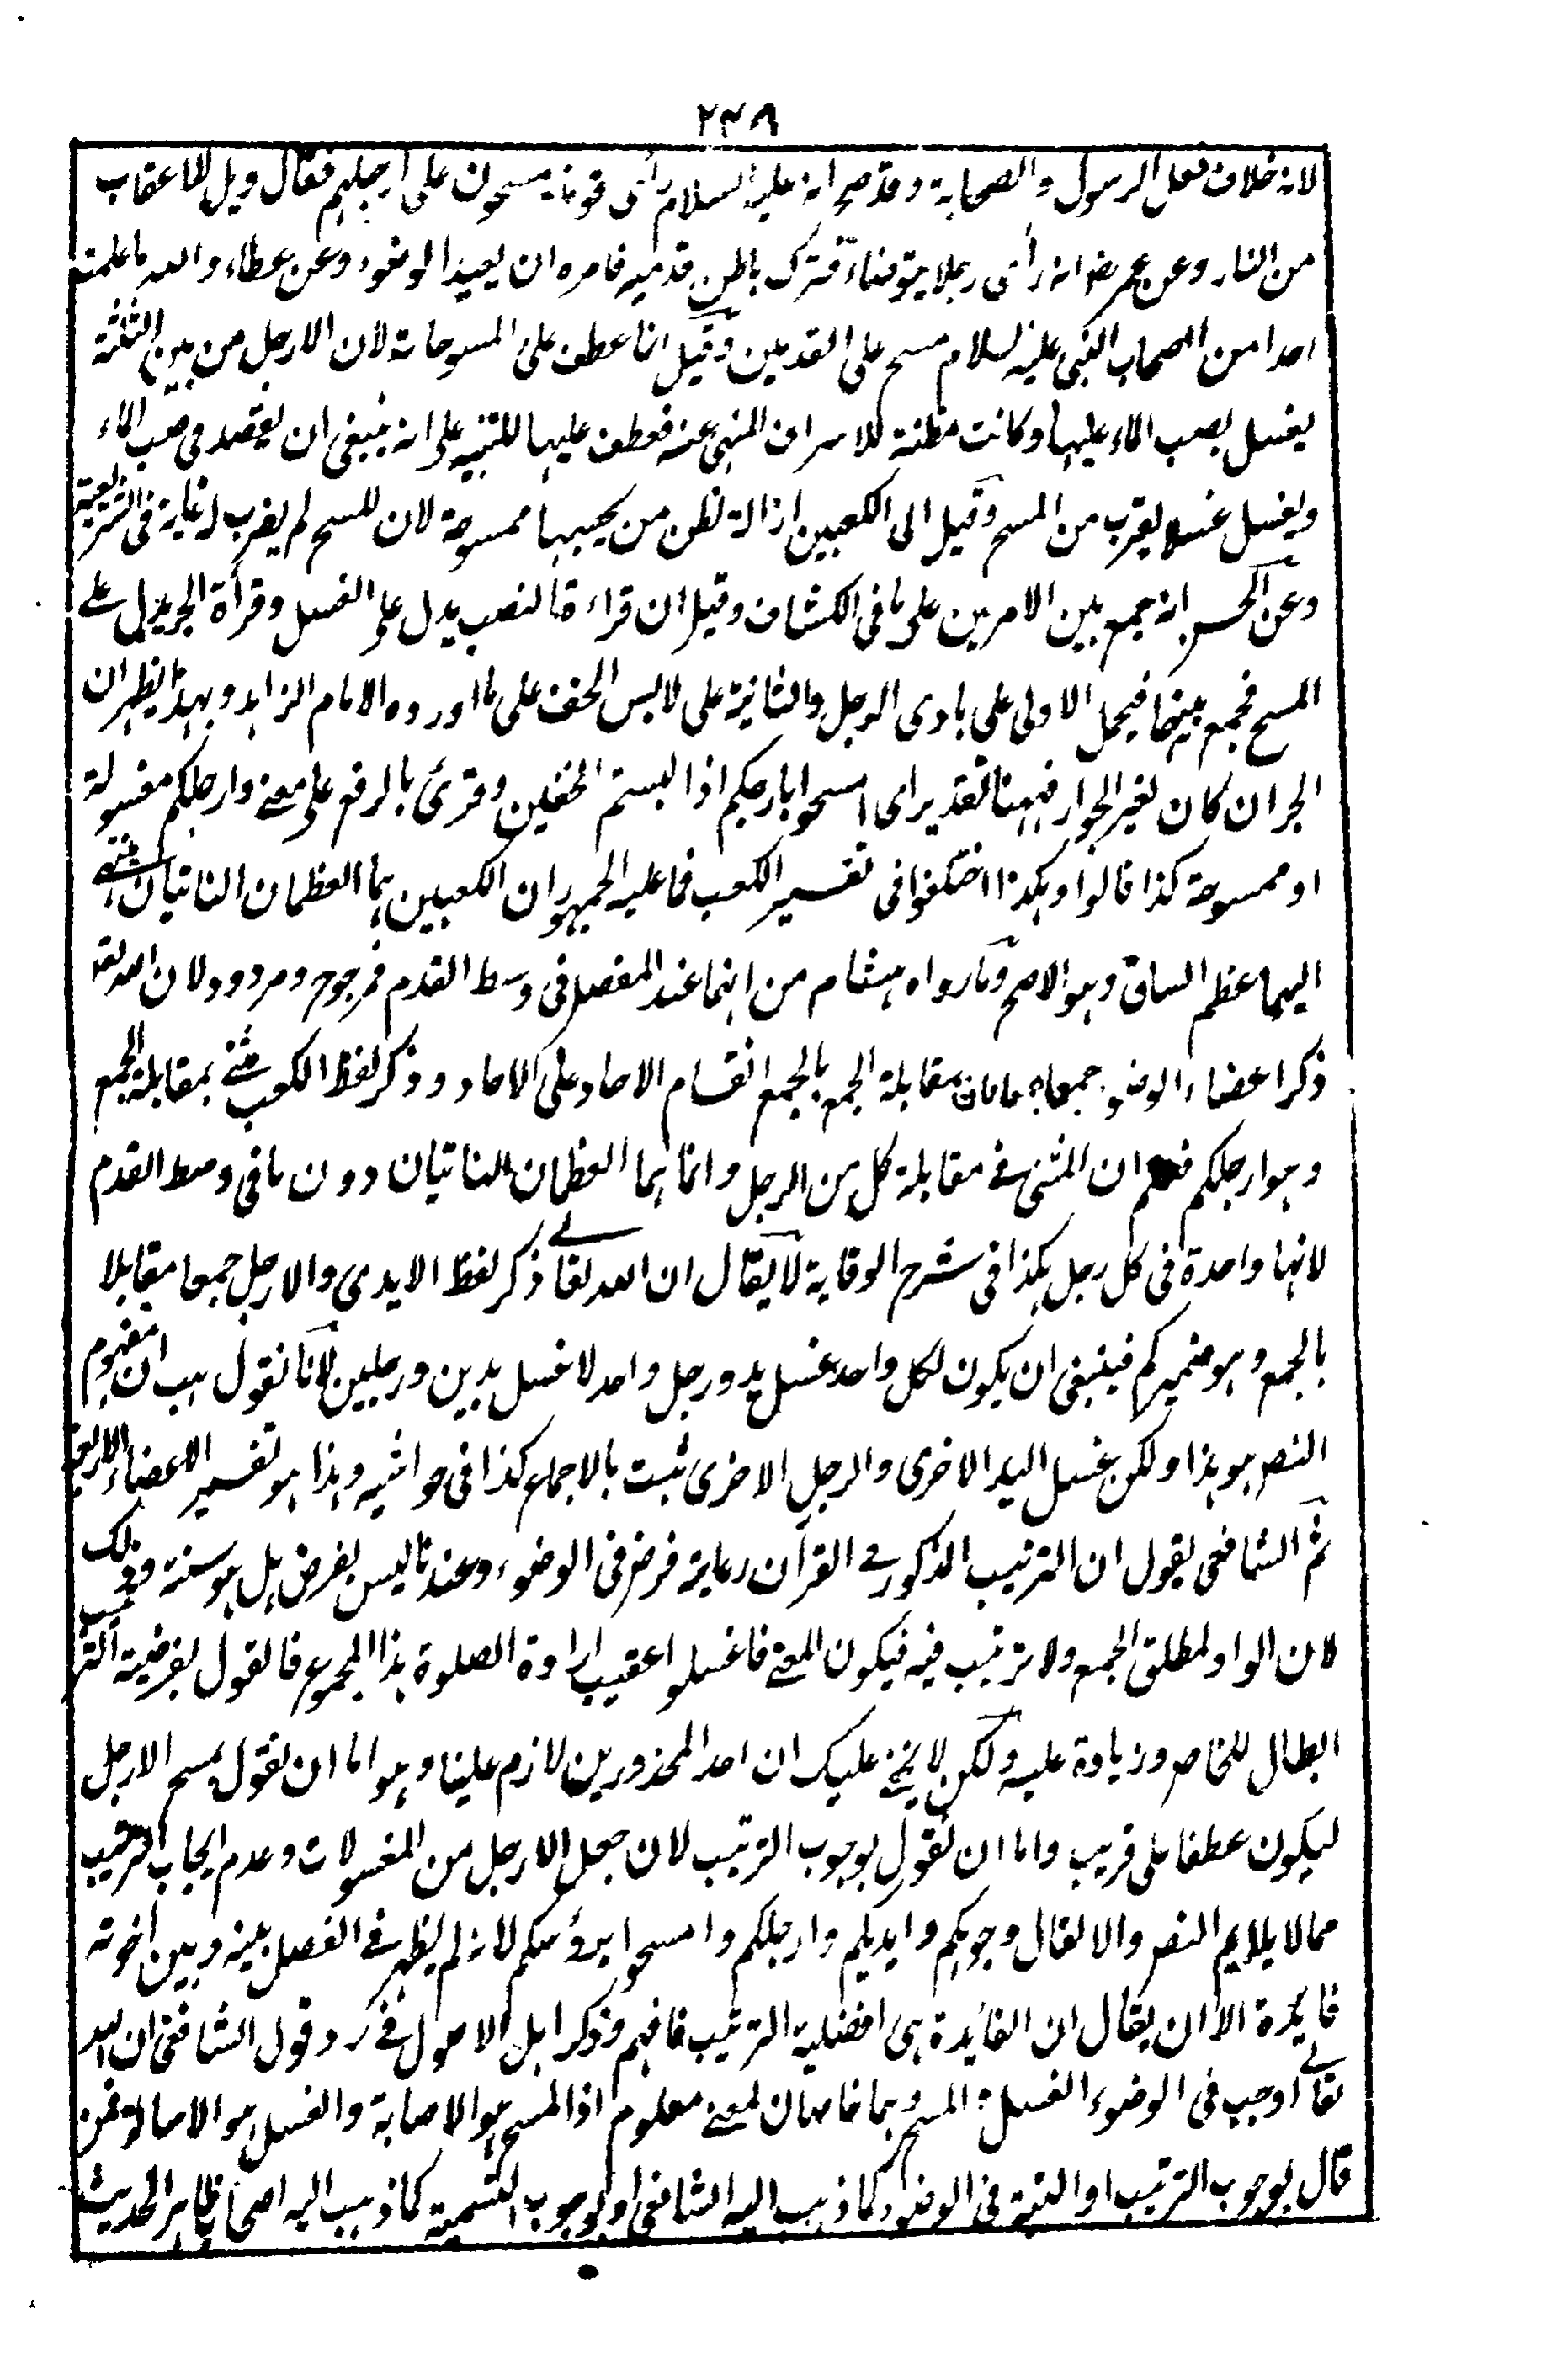 ٢٣٨
لانه خلاف فعل الرسول والصحابة وقد صح انه عليه السلام رأى قوما يمسحون على ارجلهم فقال ويل للاعقاب
من النار وعن عمر رض انه رأى رجلا يتوضاء فترك باطن قدميه فامره ان يعيد الوضوء وعن عطاء والله ما علمت
احدا من اصحاب النبى عليه السلام مسح على القدمين وقيل انما عطف على الممسوحات لان الارجل من بين الثلثة
يغسل بصب الماء عليها وكانت مظنة للاسراف المنهى عنه فعطف عليها للتنبيه على انه ينبغى ان يقصد فى صب الماء
ويغسل غسلا يقرب من المسح وقيل الى الكعبين ازالة لظن من يحسبها ممسوحة لان المسح لم يضرب له غاية فى الشريعة
وعن الحسن انه جمع بين الامرين على ما فى الكشاف وقيل ان قراءة النصب يدل على الغسل وقرأة الجر يدل على
المسح فجمع بينهما فيحمل الاولى على بادى الرجل والثانية على لابس الخف على ما اورده الامام الزاهد وبهذا يظهر ان
الجر ان كان لغير الجوار فههنا تقدير اى امسحوا بارجلكم اذا لبستم الخفين وقرئ بالرفع على معنى وارجلكم مغسولة
او ممسوحة كذا قالوا وهكذا اختلفوا فى تفسير الكعب فما عليه الجمهور ان الكعبين هما العظمان الناتيان ينتهى
اليهما عظم الساق وهو الاصح وما رواه هشام من انهما عند المفصل فى وسط القدم فمرجوح ومردود لان الله تعه
ذكر اعضاء الوضوء جمعا بمقابلة الجمع بالجمع انقسام الاحاد على الاحاد وذكر لفظ الكعب مثنى بمقابلة الجمع
وهو ارجلكم فعلم ان المثنى فى مقابلة كل من الرجل وانما هما العظمان الناتيان دون ما فى وسط القدم
لانها واحدة فى كل رجل هكذا فى شرح الوقاية لا يقال ان الله تعالى ذكر لفظ الايدى والارجل جمعا مقابلا
بالجمع وهو ضمير كم فينبغى ان يكون لكل واحد غسل يد ورجل واحد لا غسل يدين ورجلين لانا نقول هب ان مفهوم
النص هو هذا ولكن غسل اليد الاخرى والرجل الاخرى ثبت بالاجماع كذا فى حواشيه وهذا هو تفسير الاعضاء الاربعة
ثم الشافعى يقول ان الترتيب المذكور فى القرآن رعاية فرض فى الوضوء وعندنا ليس بفرض بل هو سنة وذلك
لان الواو لمطلق الجمع ولا ترتيب فيه فيكون المعنى فاغسلوا عقيب ارادة الصلوة هذا المجموع فالقول بفرضية الترتيب
ابطال للخاص وزيادة عليه ولكن لا يخفى عليك ان احد المحذورين لازم علينا وهو اما ان نقول بمسح الارجل
ليكون عطفا على قريب واما ان نقول بوجوب الترتيب لان جعل الارجل من المغسولات وعدم ايجاب الترتيب
مما لا يلايم النص والا لقال وجوهكم وايديكم وارجلكم وامسحوا برؤسكم لانه لم يظهر فى الفصل بينه وبين اخوته
فايدة الا ان يقال ان الفائدة هى افضلية الترتيب فافهم وذكر اهل الاصول فى رد قول الشافعى ان الله
تعالى اوجب فى الوضوء الغسل والمسح وهما خاصان لمعنى معلوم اذ المسح هو الاصابة والغسل هو الاسالة فمن
قال بوجوب الترتيب او النية فى الوضوء كما ذهب اليه الشافعى او بوجوب التسمية كما ذهب اليه اصحاب ظاهر الحديث